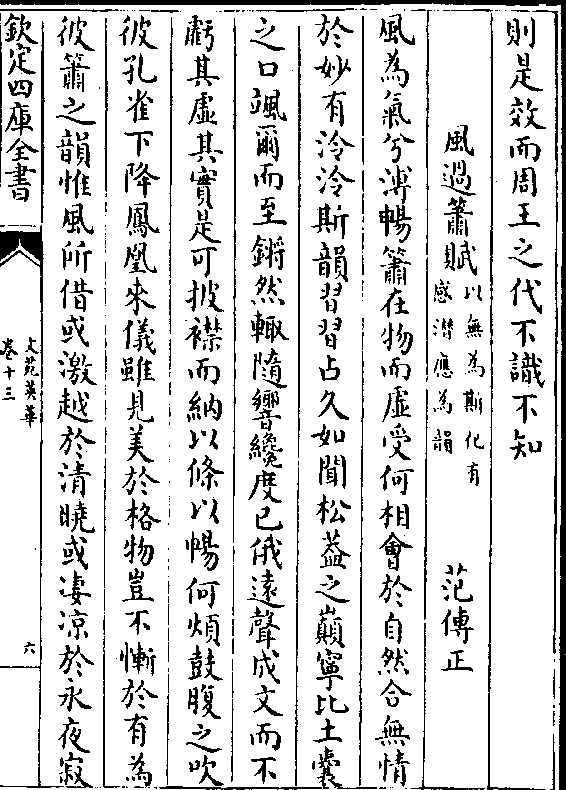 則是效而周王之代不識不知
風過簫賦以無為斯化有感潛應為韻 范傳正
風為氣兮溥暢簫在物而虛受何相會於自然合無情
於妙有泠泠斯韻習習占久如聞松葢之巔寧比土囊
之口颯爾而至鏘然輙隨響纔度已俄遠聲成文而不
虧其虛其實是可披襟而納以條以暢何煩鼓腹之吹
彼孔雀下降鳳凰來儀雖見美於格物豈不慚於有為
彼簫之韻惟風所借或激越於清曉或凄凉於永夜寂
欽定四庫全書
文苑英華
卷十三
六